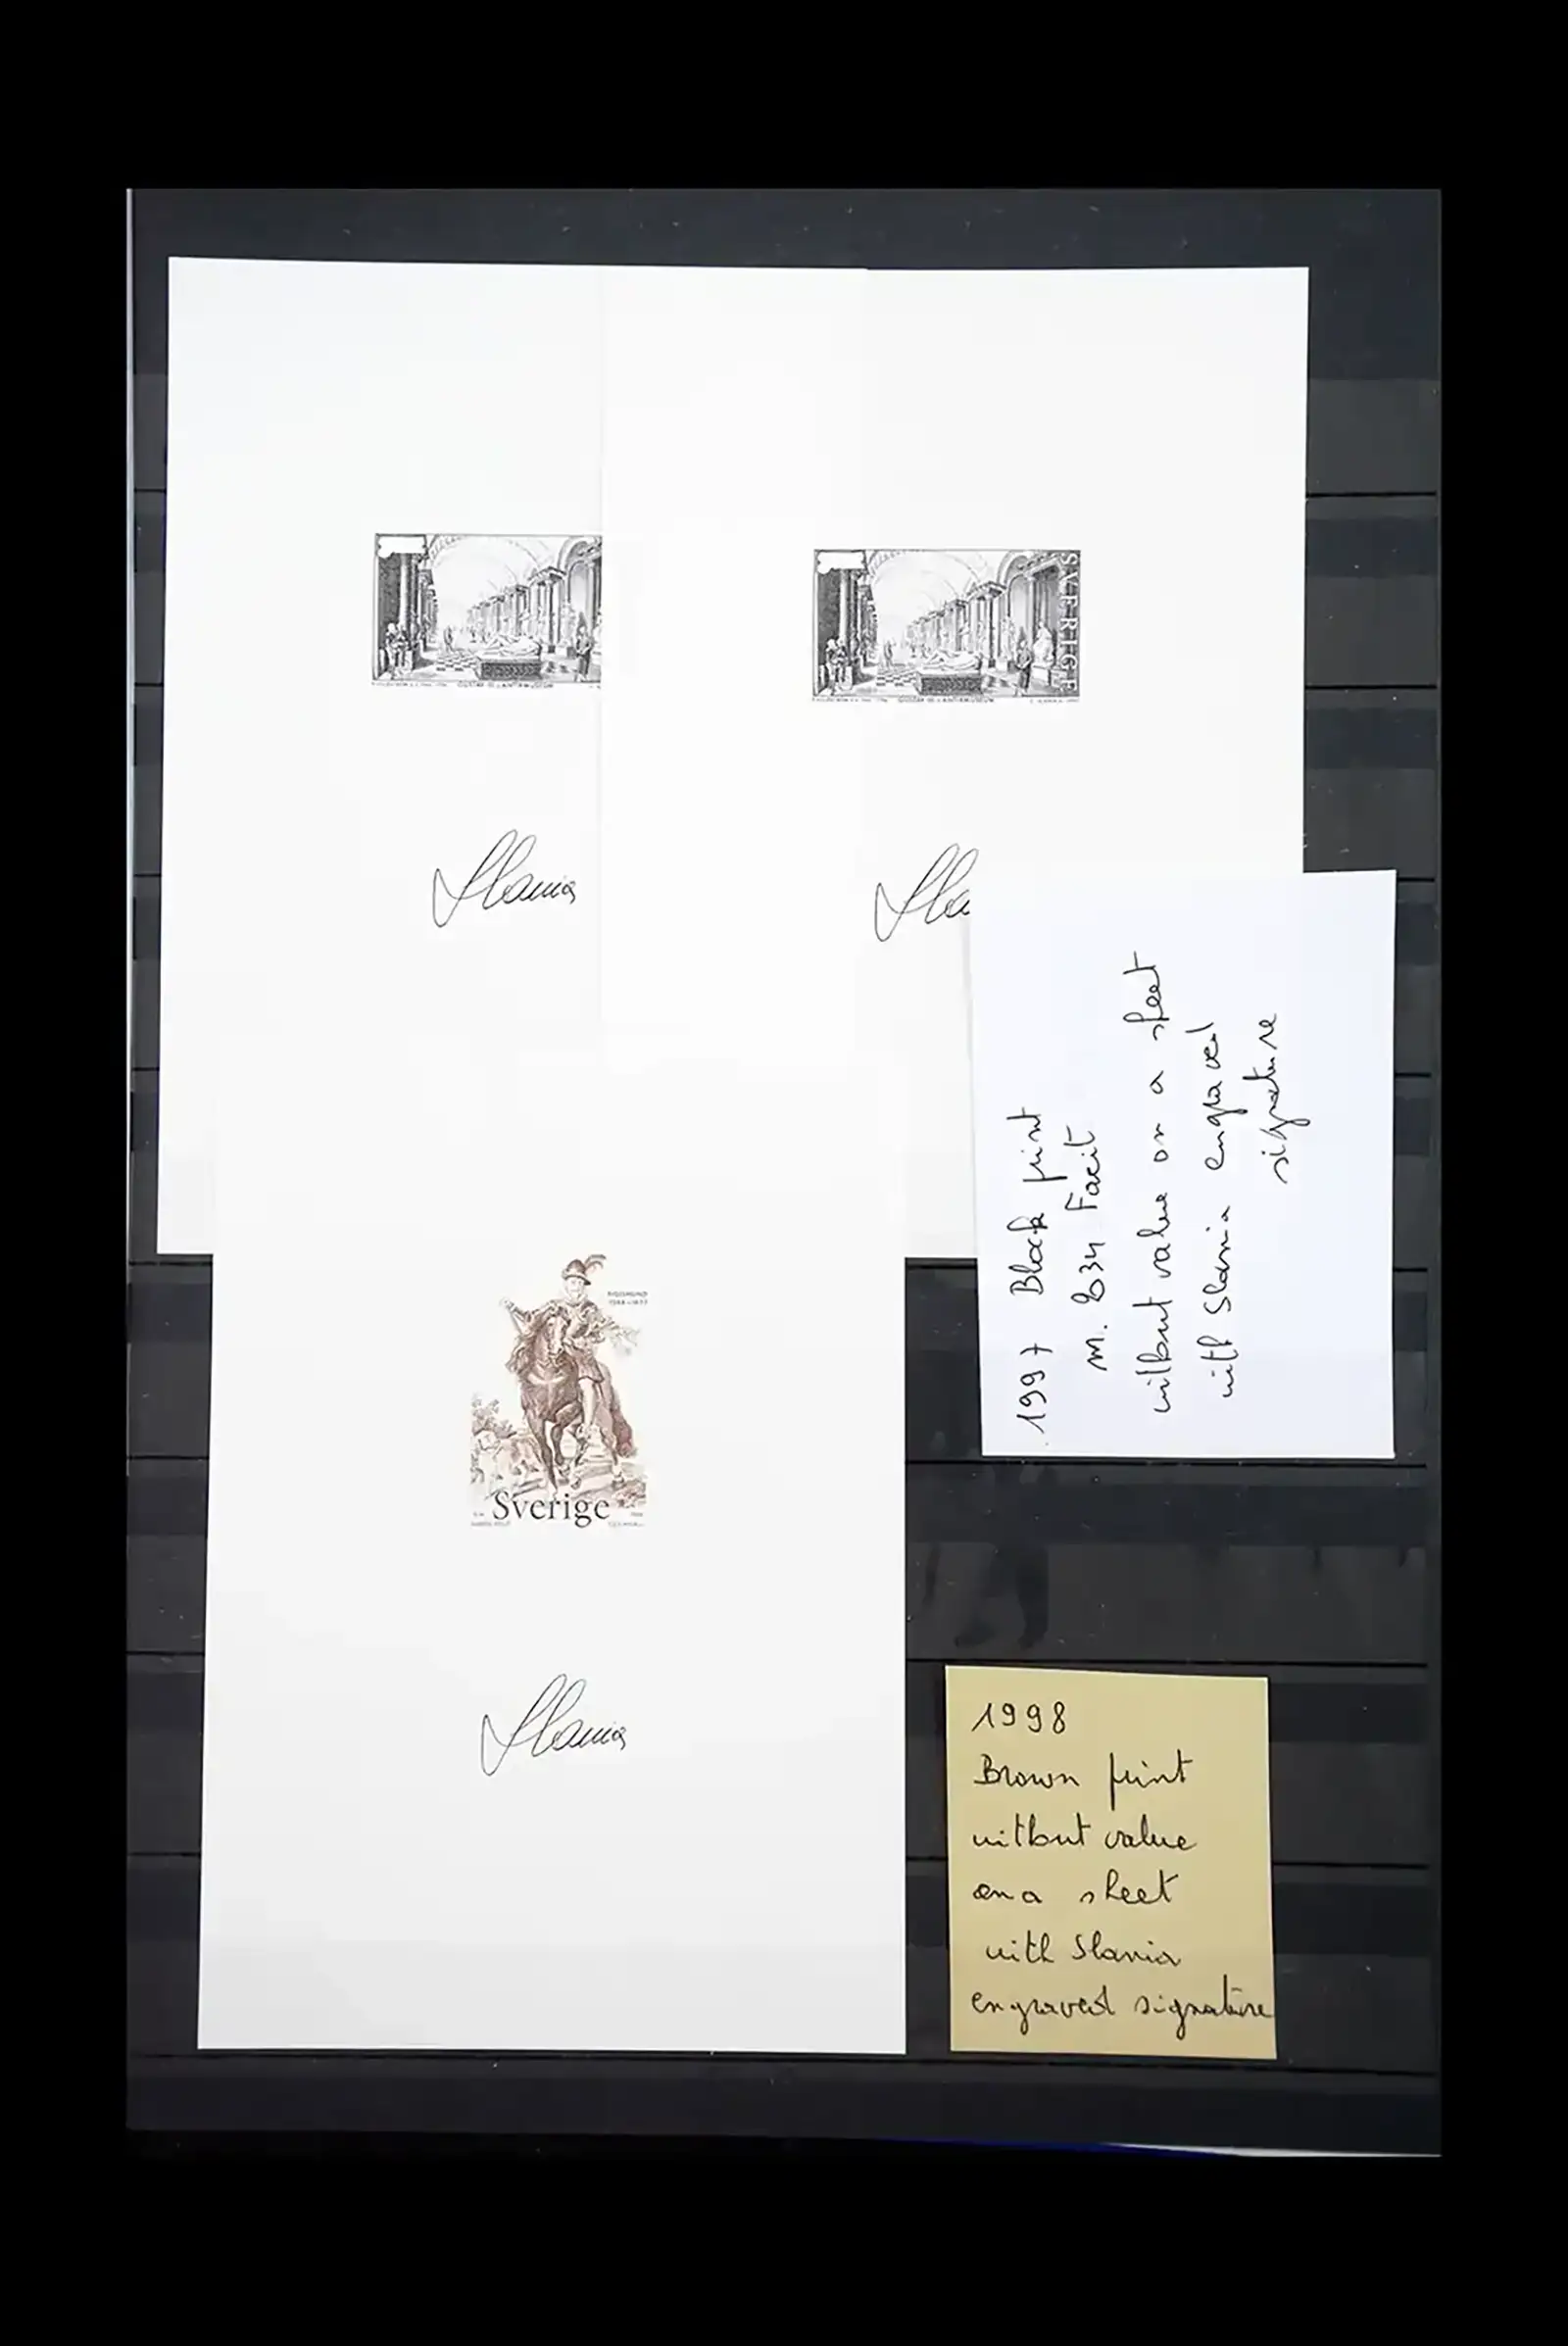 GUSTAF III:S ANTIKMUSEUM
SVERIGE
GUSTAF III:S ANTIKMUSEUM
Slania
Sla
1997 Black print
m. 634 Facit
without value on a sheet
with Slania engraved
signature
SIGISMUND
1566–1632
Sverige
Slania
1998
Brown print
without value
on a sheet
with Slania
engraved signature